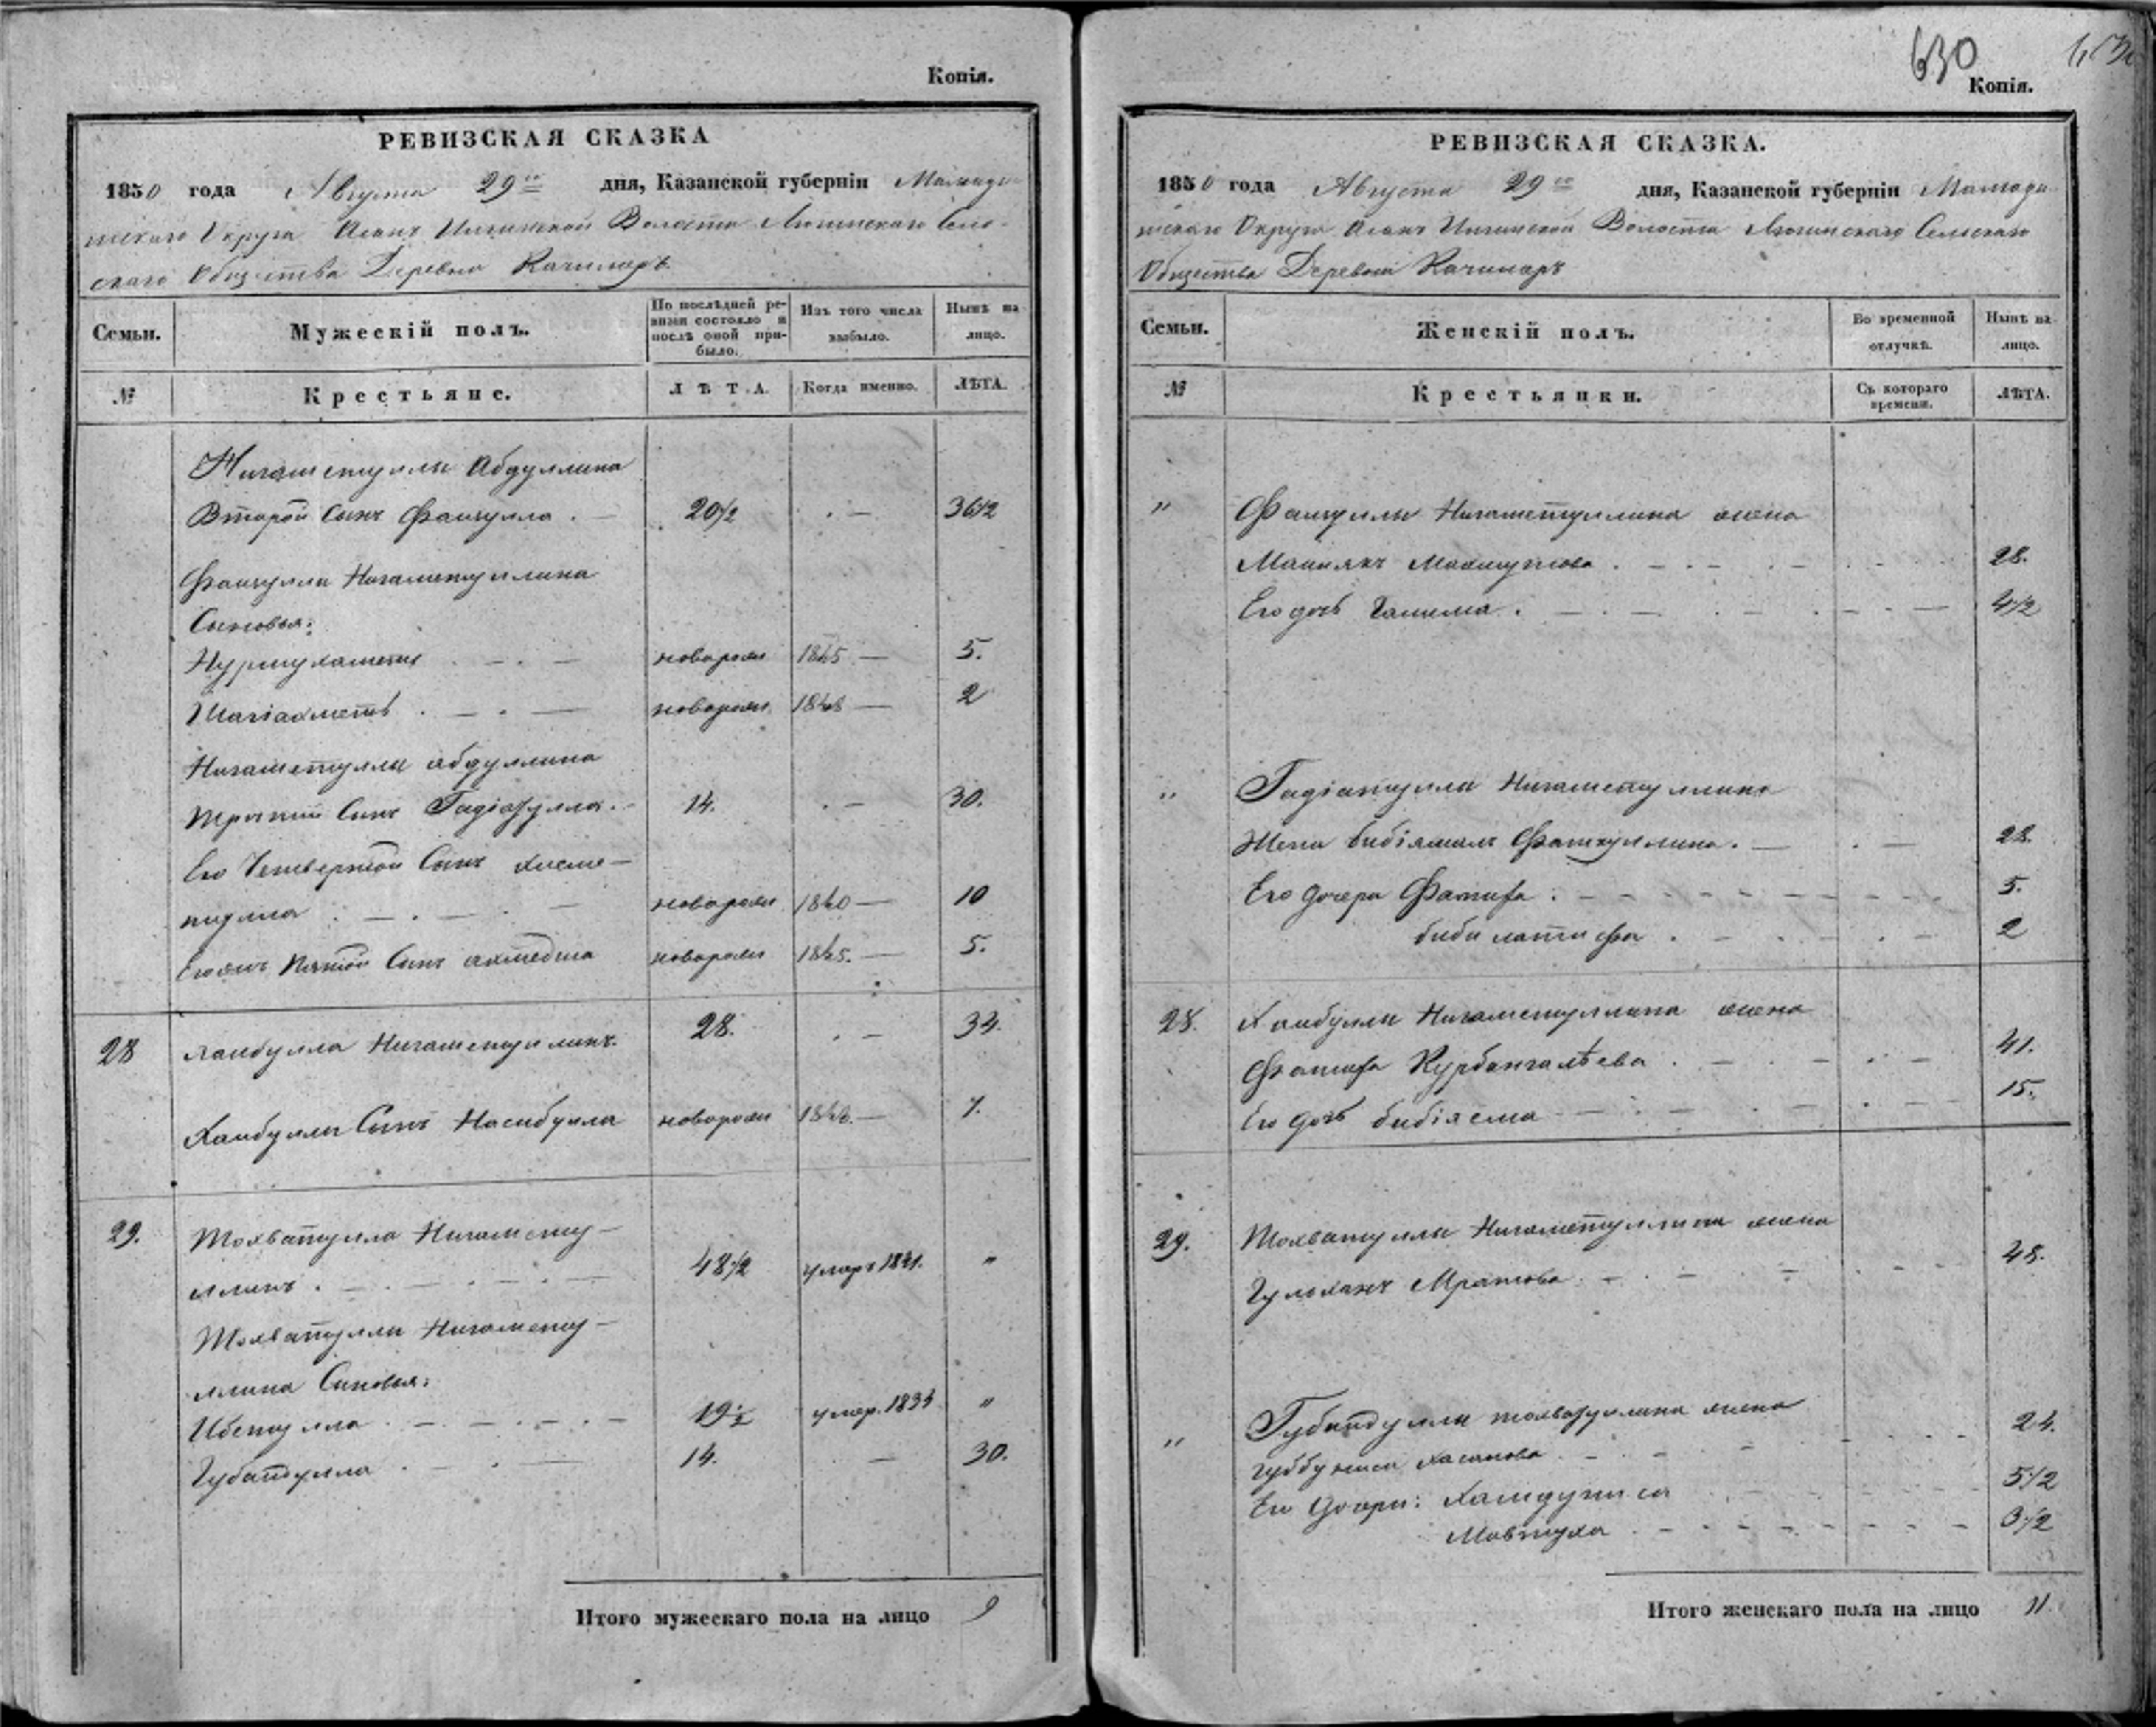 Копія.
РЕВИЗСКАЯ СКАЗКА
1850 года Августа 29го дня, Казанской губерніи Мамады-
шскаго Округа Асанъ Волости Сель-
скаго Общества Деревни Качимиръ
Семьи.
Мужескій полъ.
По послѣдней ре-
визіи состояло и
послѣ оной при-
было.
Изъ того числа
выбыло.
Нынѣ на
лицо.
№
Крестьяне.
ЛѢТА.
Когда именно.
ЛѢТА.
Нигаметуллы Абдуллина
Второй Сынъ 20 1/2 . — 36 1/2
Нигаметуллина
Сыновья:
Нурмухаметъ . — . — новорож 1845 — 5.
Шагіахметъ . — . — новорож 1848 — 2
Нигаметуллы абдуллина
третій Сынъ Гадіатулла . 14. . — 30.
Его Четвертой Сынъ
новорож 1840 — 10
Пятой Сынъ новорож 1845. — 5.
28 Хаибулла Нигаметуллинъ. 28. . — 34.
Хаибуллы Сынъ Насибулла новорож — 7.
29. Мохватулла Нигамету-
ллинъ . — . — . — 48 1/2 умеръ 1841. "
Мохватуллы Нигамету-
ллина Сыновья:
Ибетулла . — . — . — 19 1/2 умер. "
Губатулла . — . — 14. . — 30.
Итого мужескаго пола на лицо 9
630
Копія.
РЕВИЗСКАЯ СКАЗКА.
1850 года Августа 29го дня, Казанской губерніи Мамады-
шскаго Округа Асанъ Волости Сельскаго
Общества Деревни Качимиръ
Семьи.
Женскій полъ.
Во временной
отлучкѣ.
Нынѣ на
лицо.
№
Крестьянки.
Съ котораго
времени.
ЛѢТА.
" Нигаметуллина жена
Махмутова . — . — . — 28.
Его дочь Галима . — . — . — 4 1/2
" Гадіатуллы Нигаметуллина
Жена Бибіямалъ Фаткуллина . — . — 28.
Его дочери Фатифа . — — — 5.
биби латифа . — . — . — 2
28. Хаибуллы Нигаметуллина жена
Фатифа Курбангалѣева . — . — . — 41.
Его дочь бибіясма — . — . — 15.
29. Мохватуллы Нигаметуллина жена
Гульханъ Мратова . — . — . — 48.
" Губайдуллы мохватуллина жена
Хасанова . — . — 24.
Его дочери: 5 1/2
Мавтуха . — . — . — 3 1/2
Итого женскаго пола на лицо 11.